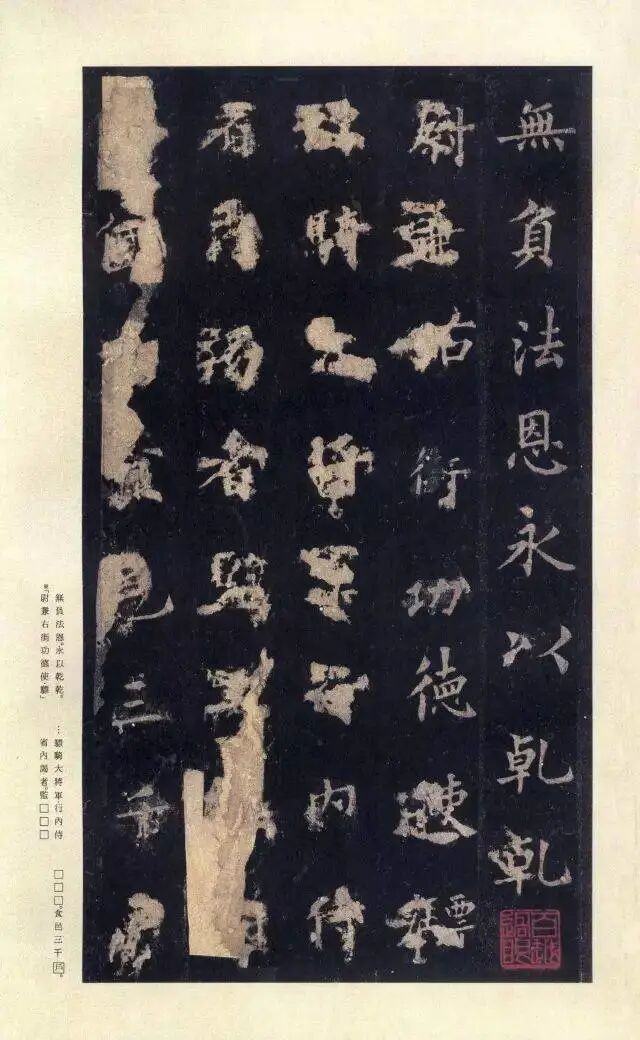 無負法恩永以乾乾
尉兼右街功德使驃
騎大將軍行內侍
省內謁者監
食邑三千戶
無負法恩。永以乾乾。
尉兼右街功德使驃
…驃騎大將軍行內侍
省內謁者。監□□□
□□□。食邑三千戶。